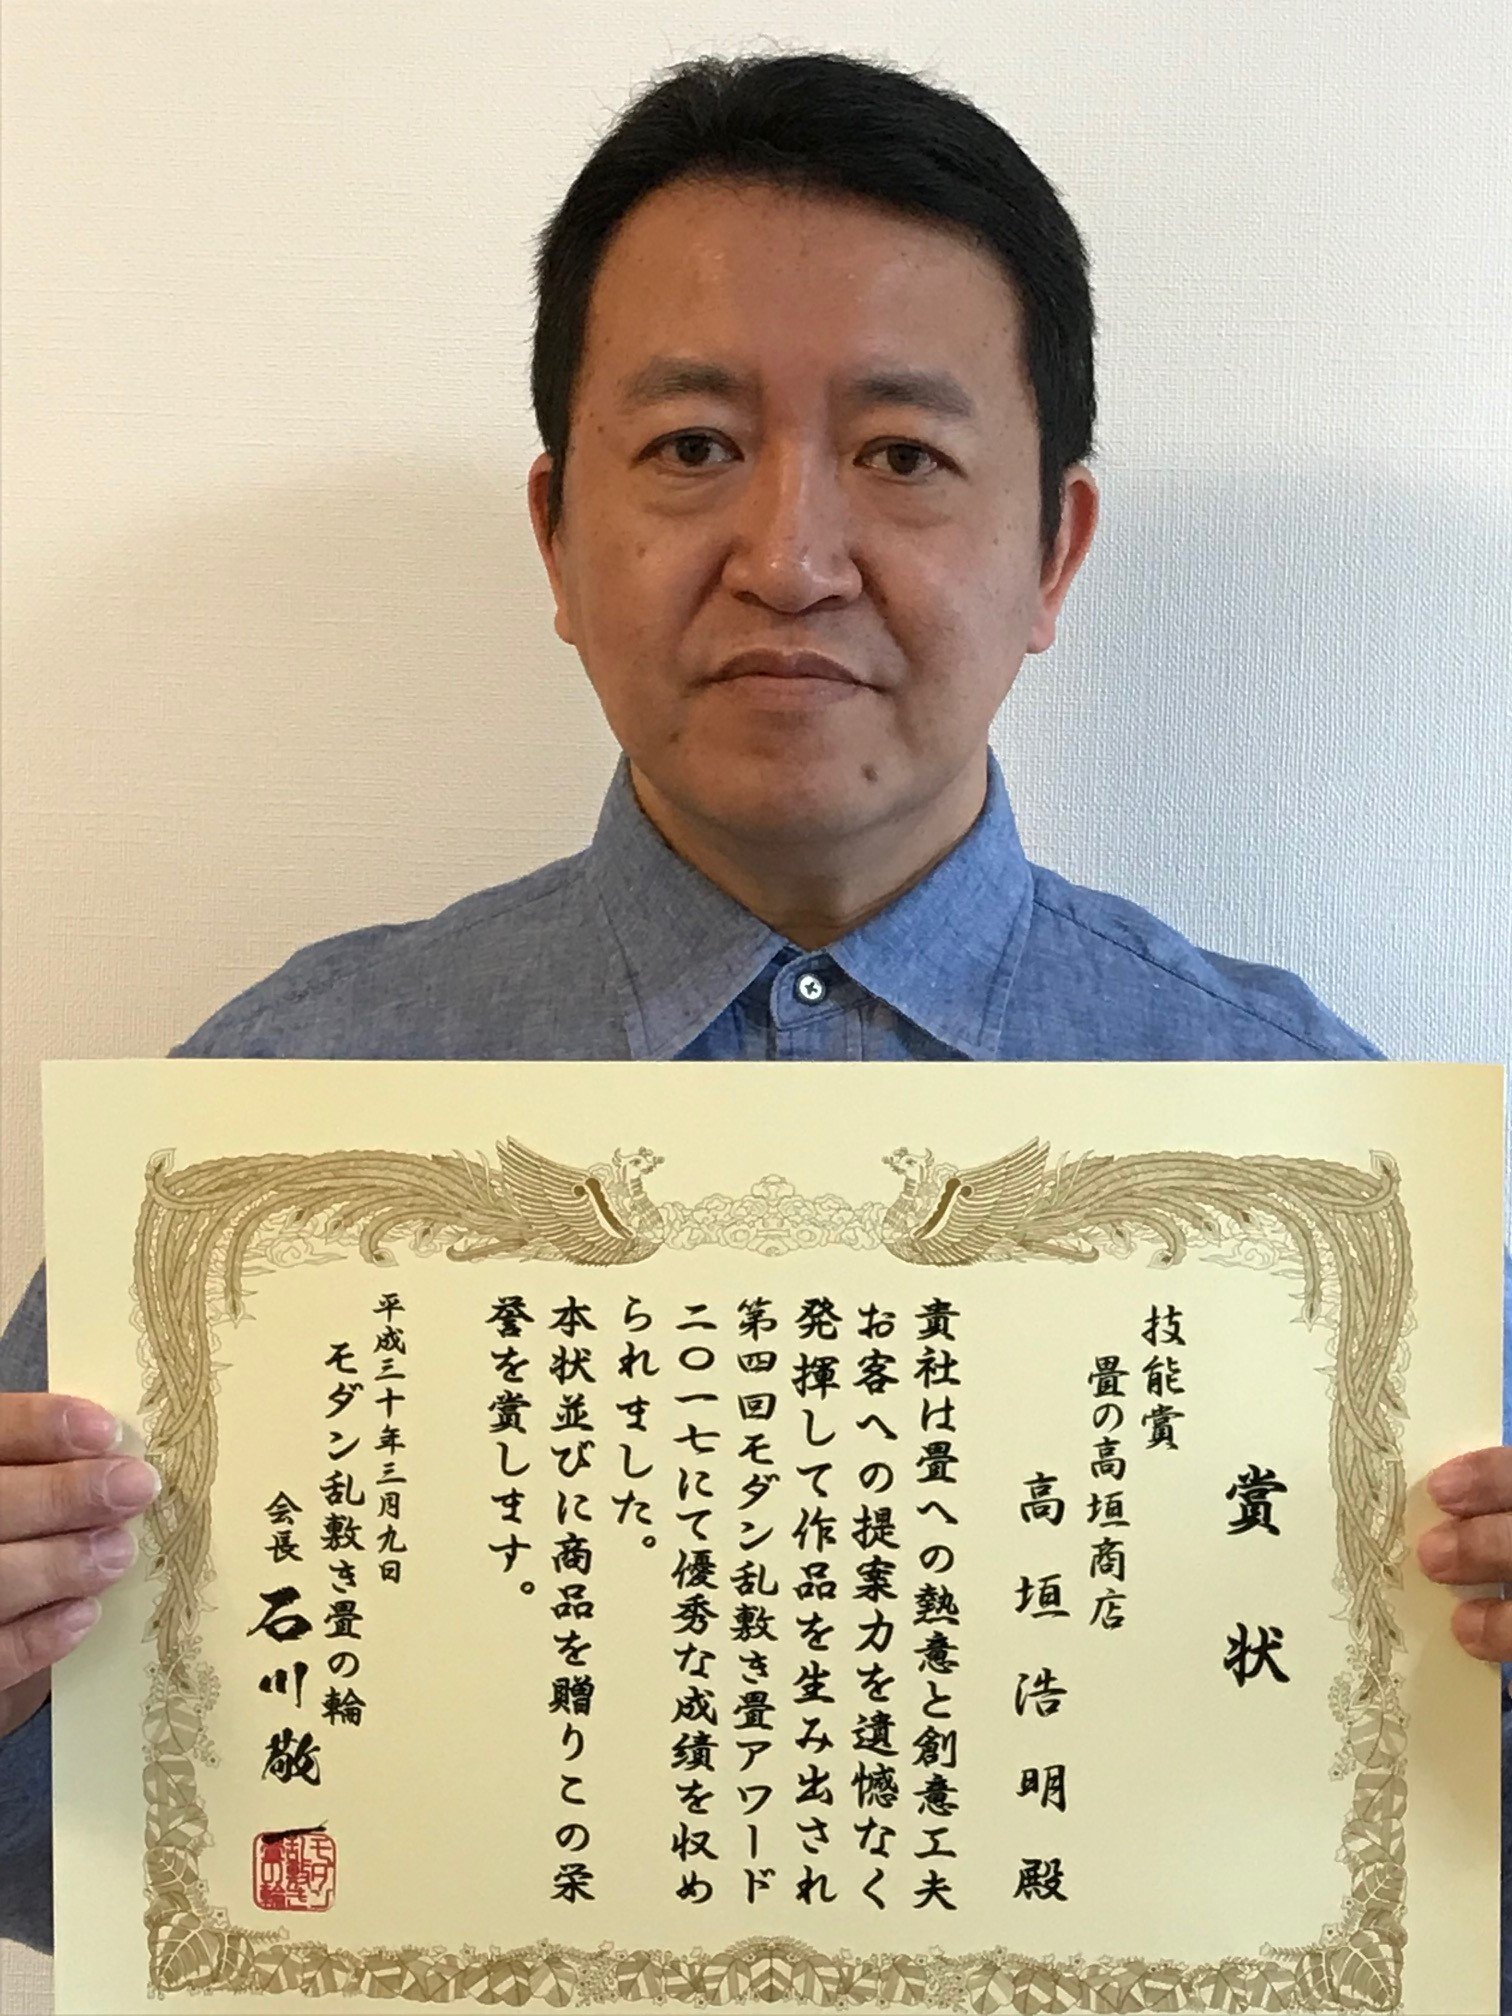 賞状
技能賞
畳の高垣商店
高垣浩明殿
貴社は畳への熱意と創意工夫
お客への提案力を遺憾なく
発揮して作品を生み出され
第四回モダン乱敷き畳アワード
二〇一七にて優秀な成績を収め
られました。
本状並びに商品を贈りこの栄
誉を賞します。
平成三十年三月九日
モダン乱敷き畳の輪
会長 石川敬一
モダン
乱敷き
畳の輪